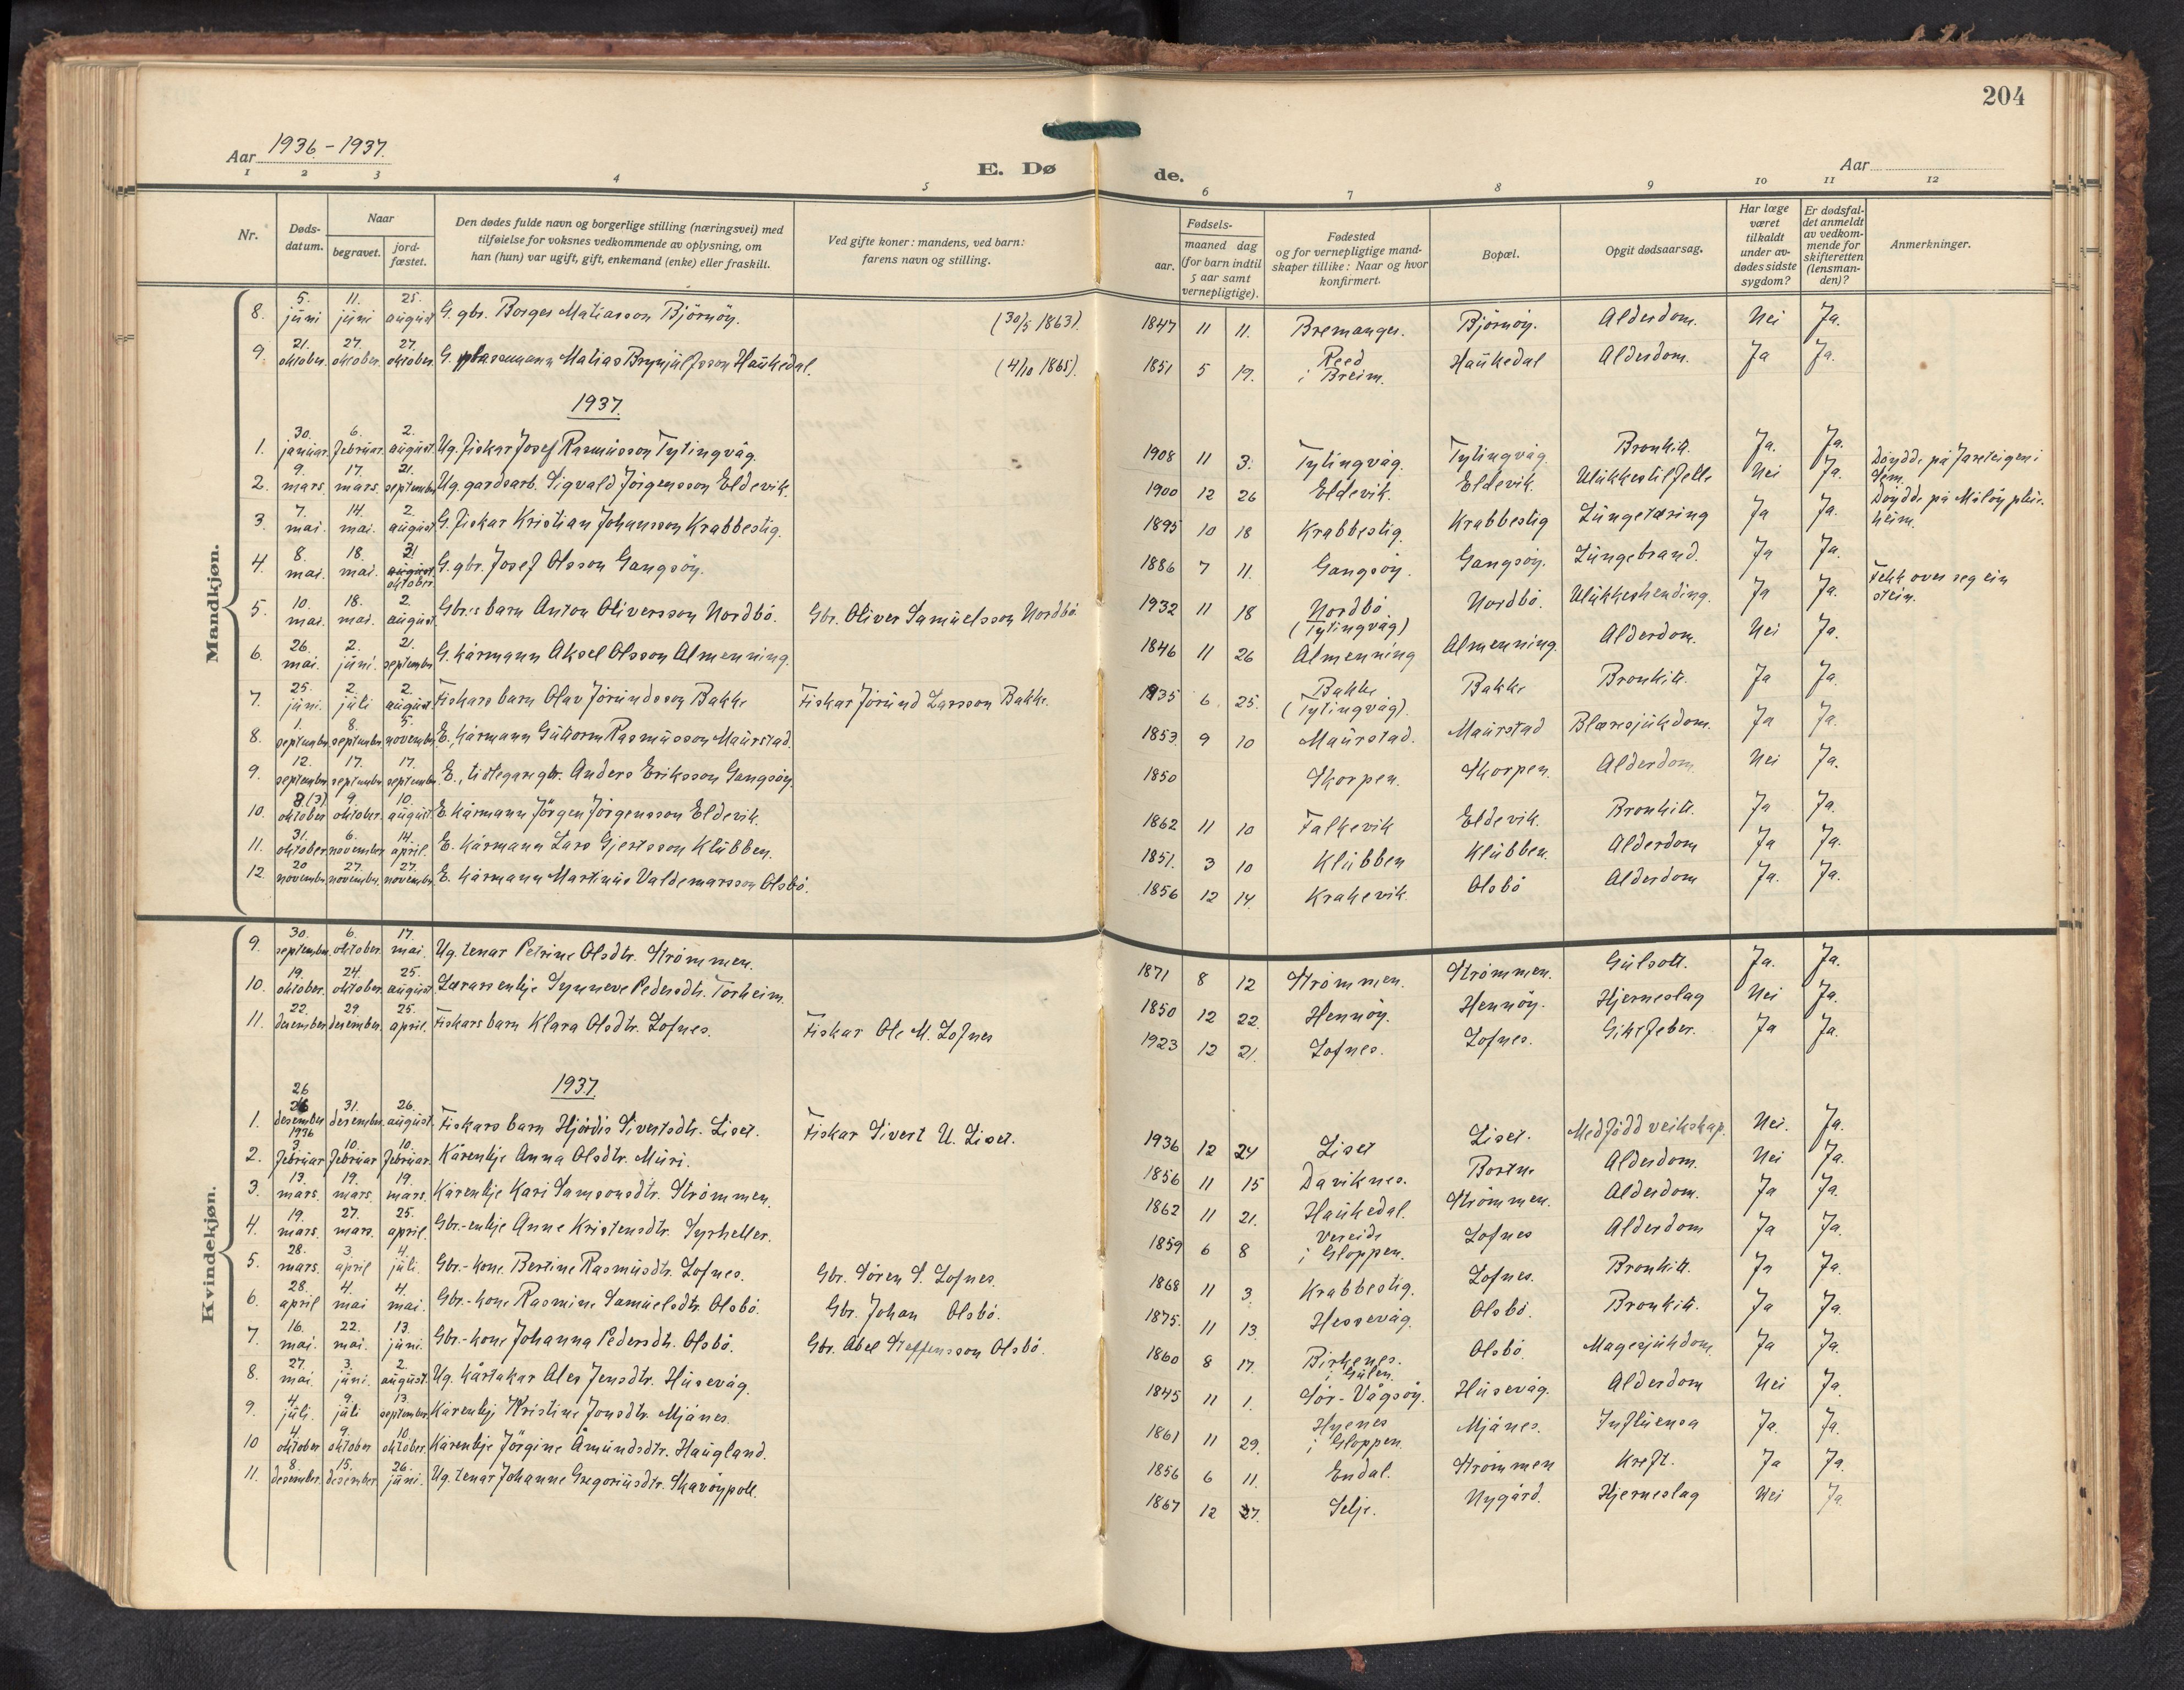 204
Aar 1936 - 1937.
E. Døde.
Aar
1 2 3 4 5 6 7 8 9 10 11 12
Nr.
Døds-datum.
Naar
begravet.
jord-fæstet.
Den dødes fulde navn og borgerlige stilling (næringsvei) med
tilføielse for voksnes vedkommende av oplysning, om
han (hun) var ugift, gift, enkemand (enke) eller fraskilt.
Ved gifte koner: mandens, ved barn:
farens navn og stilling.
Fødsels-
aar. maaned dag
(for barn indtil
5 aar samt
vernepligtige).
Fødested
og for vernepligtige mand-
skaper tillike: Naar og hvor
konfirmert.
Bopæl.
Opgit dødsaarsag.
Har læge
været
tilkaldt
under av-
dødes sidste
sygdom?
Er dødsfal-
det anmeldt
av vedkom-
mende for
skifteretten
(lensman-
den)?
Anmerkninger.
Mandkjøn.
8. 5. juni 11. juni 25. august G. gbr. Borger Matiasson Björnöy. (30/5 1863). 1847 11 11. Bremanger. Björnöy. Alderdom. Nei Ja.
9. 21. oktober. 27. oktober. 27. oktober. G. plassmann Matias Brynjulfsson Haukedal. (4/10 1865). 1851 5 17. Reed i Breim. Haukedal Alderdom. Ja Ja.
1937.
1. 30. januar. 6. februar. 2. august. Ug. fiskar Josef Rasmusson Tytingvåg. 1908 11 3. Tytingvåg. Tytingvåg. Bronkitt. Ja. Ja.
2. 9. mars. 17. mars. 21. september Ug. gardsarb. Sigvald Jörgensson Eldevik. 1900 12 26 Eldevik. Eldevik. Ulukkestilfelle Nei Ja. Döydde på i
3. 7. mai. 14. mai. 2. august G. fiskar Kristian Johansson Krabbestig. 1895 10 18 Krabbestig. Krabbestig Lungetæring Ja Ja. Döydde på Måløy pleie-
heim.
4. 8. mai. 18. mai. 31. august oktober G. gbr. Josef Olsson Gangsöy. 1886 7 11. Gangsöy. Gangsöy. Lungebrand. Ja Ja.
5. 10. mai. 18. mai. 2. august. Gbr.s barn Anton Oliversson Nordbö. Gbr. Oliver Samuelsson Nordbö. 1932 11 18 Nordbö. (Tytingvåg) Nordbö. Ulukkeshending. Ja Ja. Fekk over seg ein
stein.
6. 26. mai. 2. juni. 21. september G. kårmann Aksel Olsson Almenning. 1846 11 26 Almenning Almenning. Alderdom. Nei Ja.
7. 25. juni. 2. juli 2. august Fiskars barn Olav Jörundsson Bakke Fiskar Jörund Larsson Bakke. 1935 6 25. Bakke (Tytingvåg). Bakke Bronkitt. Ja Ja.
8. 1. september 8. september 5. november. E. kårmann Guttorm Rasmusson Maurstad. 1853. 9 10 Maurstad. Maurstad Blæresjukdom. Ja Ja.
9. 12. september 17. september 17. september. E., tidlegare gbr. Anders Eriksson Gangsöy. 1850 Skorpen. Skorpen. Alderdom. Nei Ja.
10. 3.(3) oktober 9. oktober. 10. august. E. kårmann Jörgen Jörgensson Eldevik. 1862 11 10 Falkevik Eldevik. Bronkitt. Ja Ja.
11. 31. oktober 6. november. 14. april. E. kårmann Lars Gjertsson Klubben. 1851. 3 10 Klubben Klubben. Alderdom Ja Ja.
12. 20. november. 27. november. 27. november. E. kårmann Martinus Valdemarsson Olsbö. 1856 12 14. Krakevik. Olsbö Alderdom Ja. Ja.
Kvindekjøn.
9. 30. september. 6. oktober. 17. mai. Ug. tenar Petrine Olsdtr. Strömmen. 1871 8 12 Strömmen. Strömmen. Gulsott. Ja. Ja.
10. 19. oktober. 24. oktober. 25. august. Lærarenkje Synneve Pedersdtr. Torheim. 1850 12 22. Hennöy. Hennöy. Hjerneslag Nei Ja.
11. 22. desember 29. desember. 25. april. Fiskars barn Klara Olsdtr. Lofnes. Fiskar Ole M. Lofnes 1923 12 21. Lofnes. Lofnes. Giktfeber. Ja Ja.
1937.
1. 26 desember 1936 31. desember. 26. august. Fiskars barn Hjördis Sivertsdtr. Liset. Fiskar Sivert U. Liset. 1936 12 24 Liset Liset. Medfödd veikskap. Nei. Ja.
2. 3. februar 10. februar 10. februar. Kårenkje Anna Olsdtr. Muri. 1856 11 15 Daviknes. Bortne Alderdom. Nei Ja.
3. 13. mars. 19. mars. 19. mars. Kårenkje Kari Samsonsdtr. Strömmen. 1862 11 21. Haukedal. Strömmen. Alderdom. Ja Ja.
4 19. mars. 27. mars. 25. april. Gbr.-enkje Anne Kristensdtr. Syrheller. 1859 6 8 Vereide i Gloppen. Lofnes Alderdom Ja Ja.
5. 28. mars. 3. april 4. juli. Gbr.-kone Bertine Rasmusdtr. Lofnes. Gbr. Sören S. Lofnes. 1868 11 3. Krabbestig. Lofnes. Bronkitt. Ja Ja.
6. 28. april 4. mai 4. mai. Gbr.-kone Rasmine Samuelsdtr. Olsbö. Gbr. Johan Olsbö. 1875. 11 13. Hessevåg. Olsbö. Bronkitt. Ja Ja.
7. 16. mai. 22. mai. 13. juni. Gbr.-kone Johanna Pedersdtr. Olsbö. Gbr. Abel Steffensson Olsbö. 1860 8 17. Birkenes. i Gulen. Olsbö. Magesjukdom. Ja Ja.
8. 27. mai. 3. juni. 2. august. Ug. kårtakar Ales Jensdtr. Husevåg. 1845 11 1. Sör-Vågsöy. Husevåg. Alderdom Nei Ja.
9. 4. juli. 9. juli 13. september Kårenkje Kristine Jonsdtr. Mjånes. 1861 11 29. Hyenes i Gloppen. Mjånes. Influensa Ja. Ja.
10 4. oktober 9. oktober 10. oktober. Kårenkje Jörgine Åmundsdtr. Haugland. 1856 6 11. Endal. Strömmen Kreft. Ja Ja.
11. 8. desember. 15. desember. 26. juni. Ug. tenar Johanne Gregoriusdtr. Skavöypoll. 1867 12 27. Selje. Nygård. Hjerneslag Nei Ja.